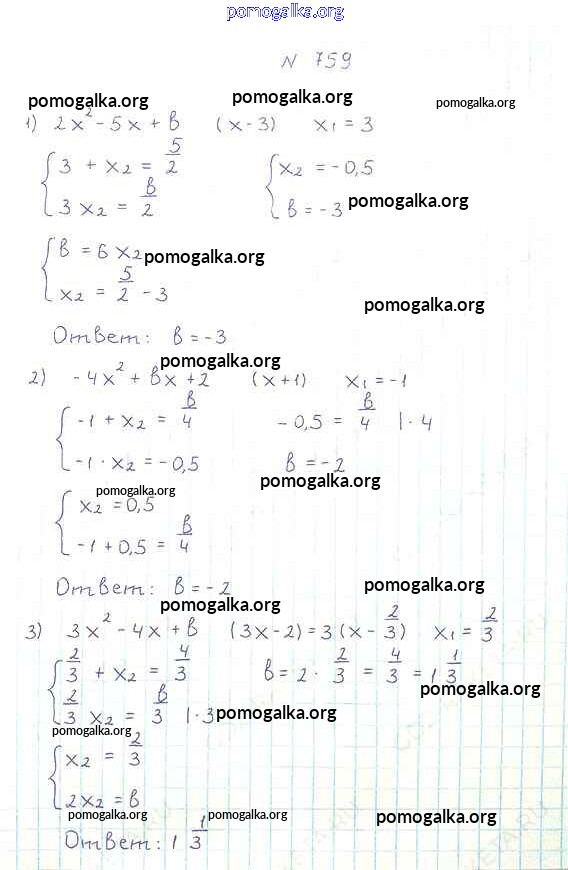 pomogalka.org
N 759
pomogalka.org pomogalka.org pomogalka.org
1) 2x² - 5x + в (x-3) x₁ = 3
3 + x₂ = 5/2 x₂ = -0,5
3x₂ = в/2 в = -3 pomogalka.org
в = 6x₂ pomogalka.org
x₂ = 5/2 - 3
pomogalka.org
Ответ: в = -3
pomogalka.org
2) -4x² + вx + 2 (x+1) x₁ = -1
-1 + x₂ = в/4 -0,5 = в/4 |·4
-1 · x₂ = -0,5 в = -2
pomogalka.org
pomogalka.org
x₂ = 0,5
-1 + 0,5 = в/4
Ответ: в = -2 pomogalka.org
pomogalka.org
3) 3x² - 4x + в (3x-2) = 3(x - 2/3) x₁ = 2/3
2/3 + x₂ = 4/3 в = 2 · 2/3 = 4/3 = 1 1/3
pomogalka.org
2/3 x₂ = в/3 |·3 pomogalka.org
pomogalka.org
x₂ = 2/3
2x₂ = в
pomogalka.org pomogalka.org pomogalka.org
Ответ: 1 1/3